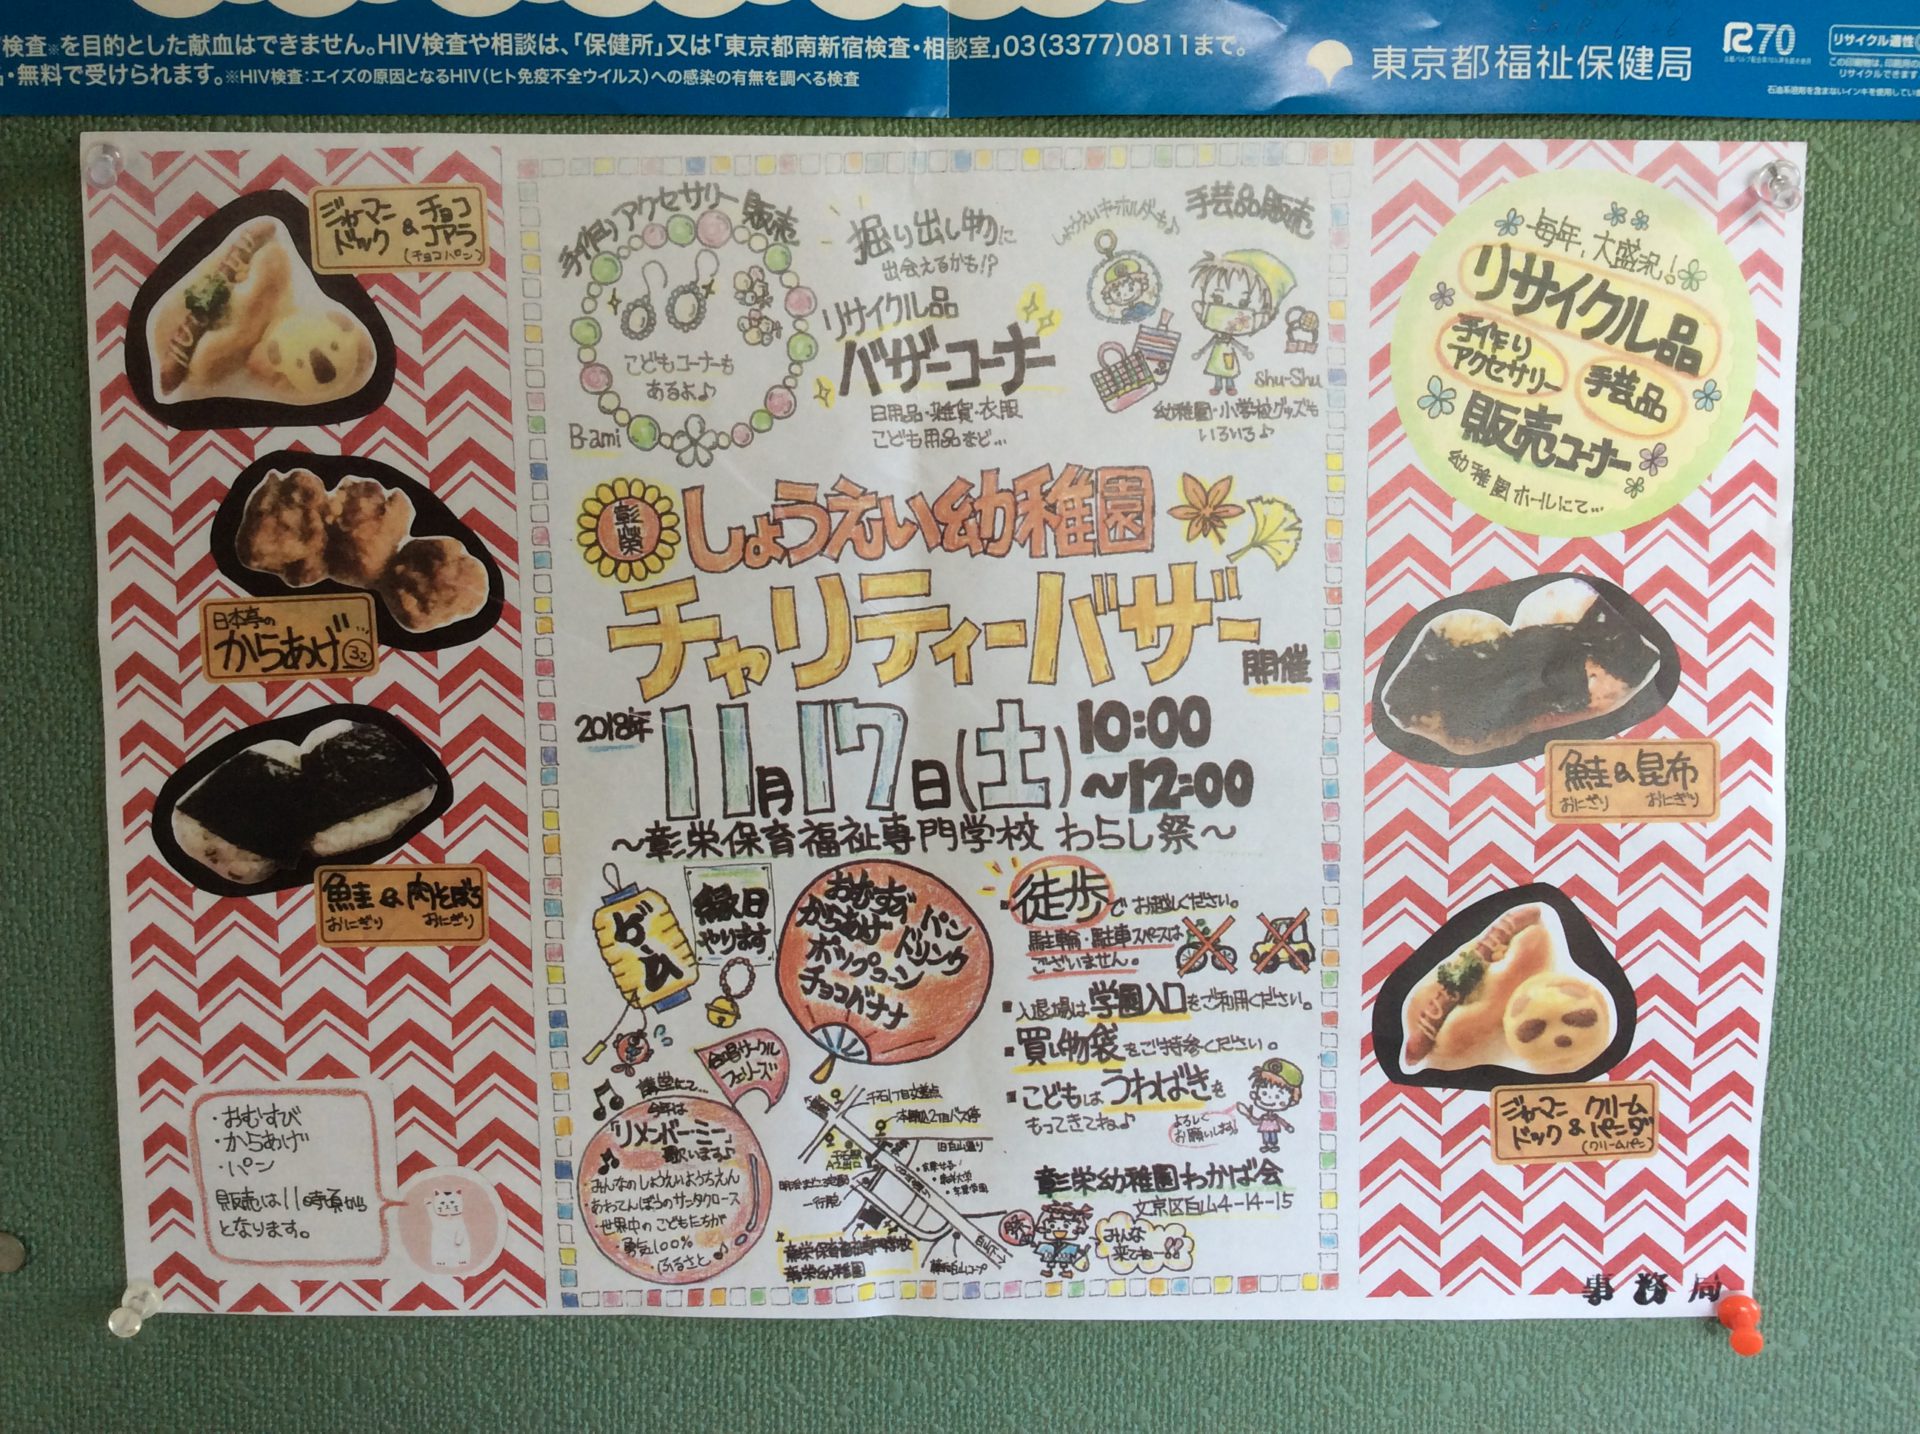 検査※を目的とした献血はできません。HIV検査や相談は、「保健所」又は「東京都南新宿検査・相談室」03(3377)0811まで。
・無料で受けられます。※HIV検査:エイズの原因となるHIV(ヒト免疫不全ウイルス)への感染の有無を調べる検査
東京都福祉保健局
R70
リサイクル適性
この印刷物は、印刷用の
リサイクルできます
ジャーマン
ドック & チョコ
コアラ
(チョコパン)
日本亭の
からあげ 3コ
鮭 & 肉そぼろ
おにぎり おにぎり
・おむすび
・からあげ
・パン
販売は11時頃から
となります。
手作りアクセサリー販売
こどもコーナーも
あるよ♪
B-ami
掘り出し物に
出会えるかも!?
リサイクル品
バザーコーナー
日用品・雑貨・衣服
こども用品など…
しょうえいキーホルダーも♪
手芸品販売
shu-shu
幼稚園・小学校グッズも
いろいろ♪
彰榮
しょうえい幼稚園
チャリティーバザー
開催
2018年
11月17日(土)
10:00
~12:00
~彰栄保育福祉専門学校 わらし祭~
ゲーム
縁日
やります
おむすび
からあげ
ポップコーン
チョコバナナ
パン
ドリンク
合唱サークル
フェリーズ
講堂にて…
今年は
「リメンバー・ミー」
歌います♪
・みんなのしょうえいようちえん
・あわてんぼうのサンタクロース
・世界中のこどもたちが
・勇気100%
・ふるさと
千石1丁目交差点
本駒込2丁目バス停
千石駅
A2出口
旧白山通り
一行院
彰栄保育福祉専門学校
彰栄幼稚園
■徒歩でお越しください。
駐輪・駐車スペースは
ございません。
■入退場は学園入口をご利用ください。
■買い物袋をご持参ください。
■こどもはうわばきを
もってきてね♪
よろしく
お願いします!
彰栄幼稚園わかば会
文京区白山4-14-15
みんな
来てねー!!
毎年、大盛況!
リサイクル品
手作り
アクセサリー
手芸品
販売コーナー
幼稚園ホールにて…
鮭 & 昆布
おにぎり おにぎり
ジャーマン
ドック & クリーム
パンダ
(クリームパン)
事務局